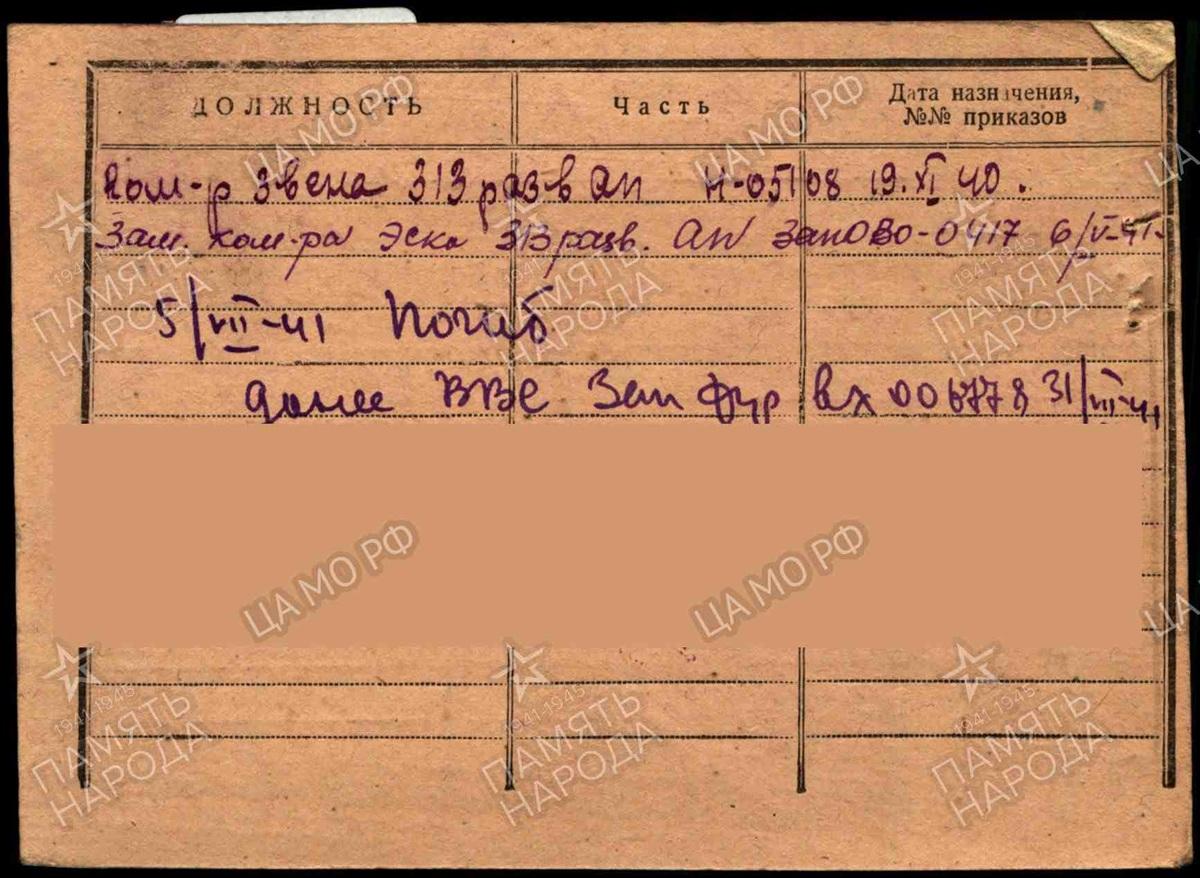 ДОЛЖНОСТЬ Часть Дата назначения,
№№ приказов
Ком-р звена 313 развАп Н-05108 19.XI 40.
Зам. ком-ра Эска 313 разв. АП ЗапОВО-0417 6/V-41.
5/VII-41 Погиб
донес ВВС Зап Фр вх 006778 31/VII-41
ЦА МО РФ
ЦА МО РФ
1941-1945
ПАМЯТЬ
НАРОДА
1941-1945
ПАМЯТЬ
НАРОДА
1941-1945
ПАМЯТЬ
НАРОДА
ЦА МО РФ
ЦА МО РФ
1941-1945
ПАМЯТЬ
НАРОДА
1941-1945
ПАМЯТЬ
НАРОДА
1941-1945
ПАМЯТЬ
НАРОДА